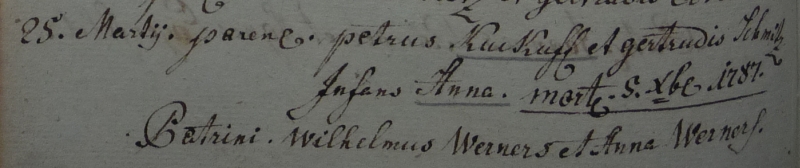 25. Martij. parenc. petrus Kuckuss et gertrudis Schmitz
Infans Anna. mort. 8. Xbr. 1787.
Patrini. Wilhelmus Werners et Anna Werners.